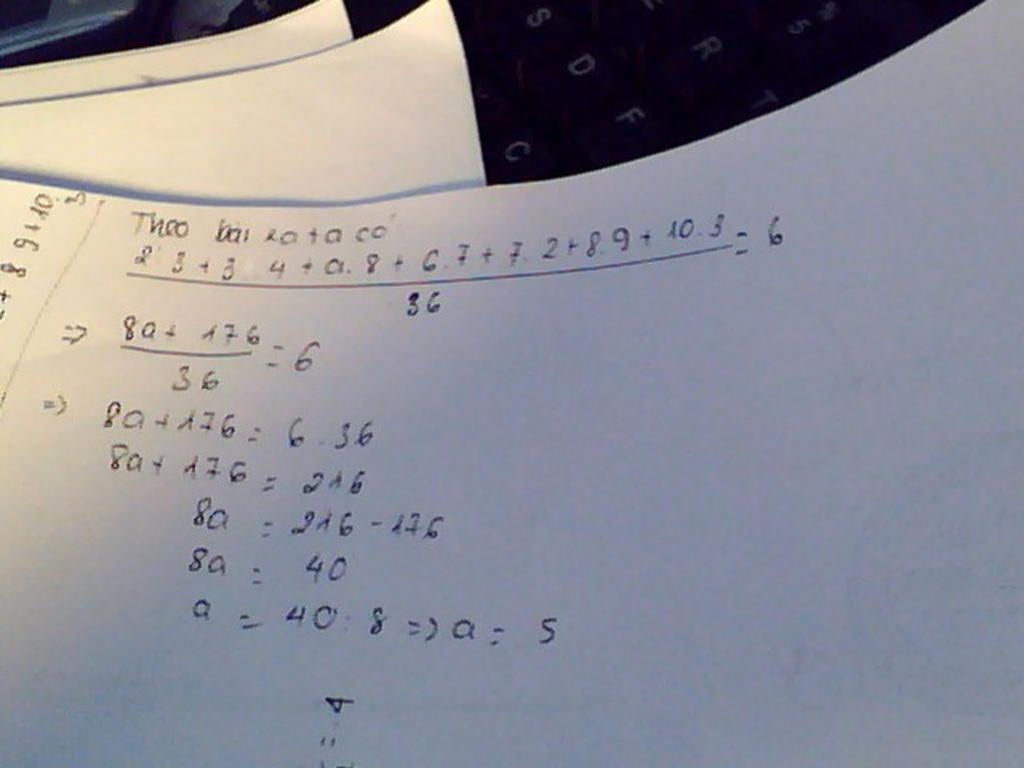 Theo bài ra ta có
2.3+3.4+a.8+6.7+7.2+8.9+10.3 = 6
36
=> 8a+176 = 6
36
=> 8a+176 = 6.36
8a+176 = 216
8a = 216-176
8a = 40
a = 40:8 => a = 5
8 9+10.3
= 4
S D F C R T 5